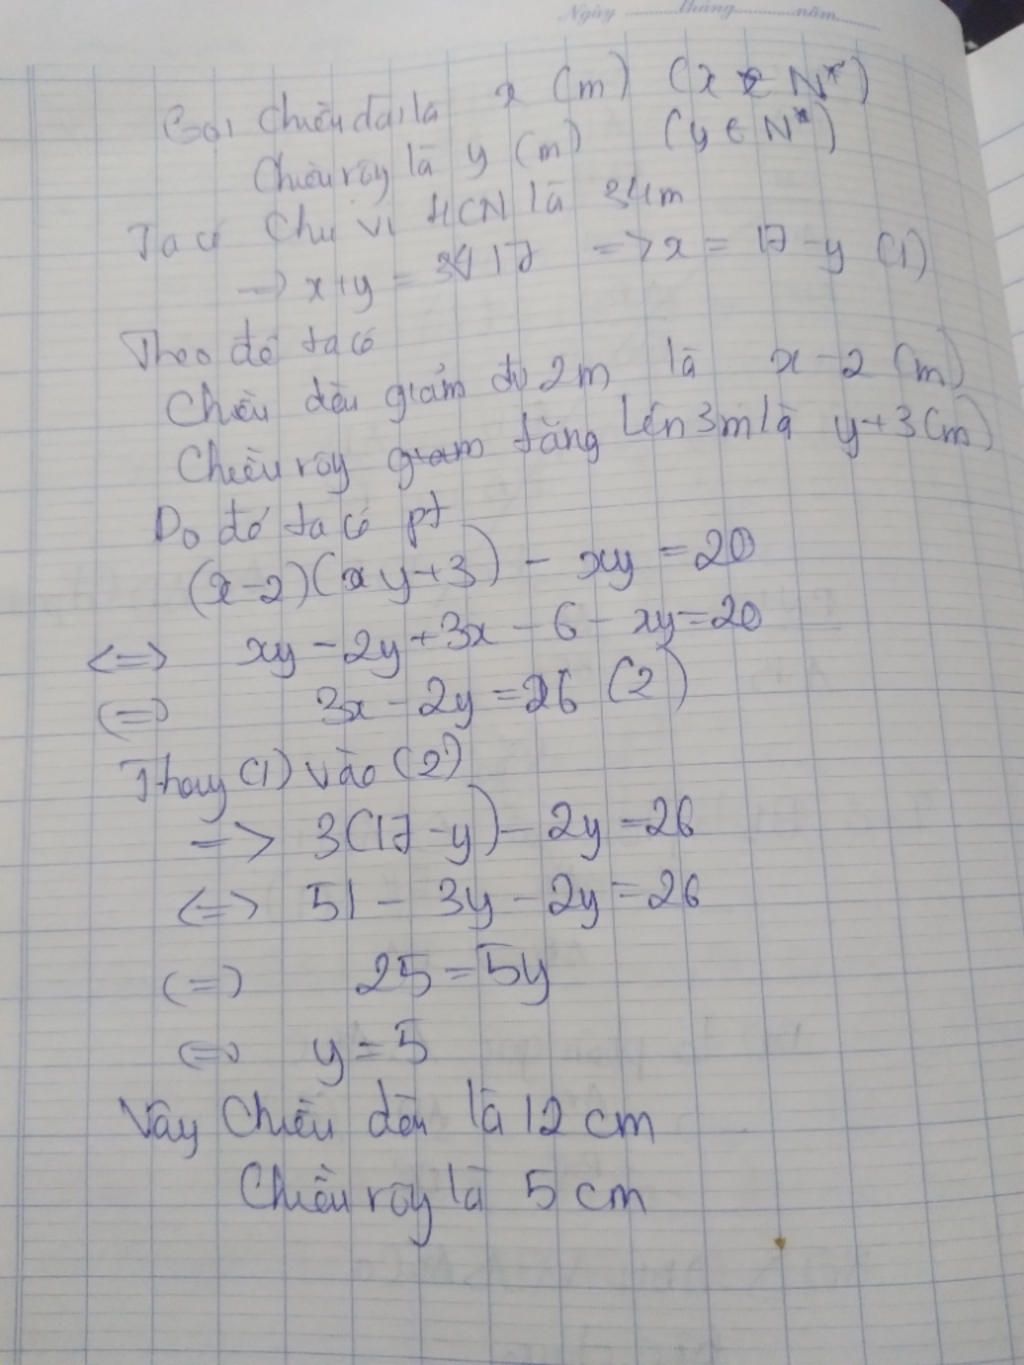 Ngày ........ tháng ........ năm ........
Gọi chiều dài là x (m) (x ∈ N*)
Chiều rộg là y (m) (y ∈ N*)
Ta có chu vi HCN là 34m
=> x+y = 17 => x = 17 - y (1)
Theo đề ta có
Chiều dài giảm đi 2m là x - 2 (m)
Chiều rộg tăng lên 3m là y+3 (m)
Do đó ta có pt
(x-2)(y+3) - xy = 20
<=> xy - 2y + 3x - 6 - xy = 20
<=> 3x - 2y = 26 (2)
Thay (1) vào (2)
=> 3(17 - y) - 2y = 26
<=> 51 - 3y - 2y = 26
<=> 25 = 5y
<=> y = 5
Vậy Chiều dài là 12 cm
Chiều rộg là 5 cm